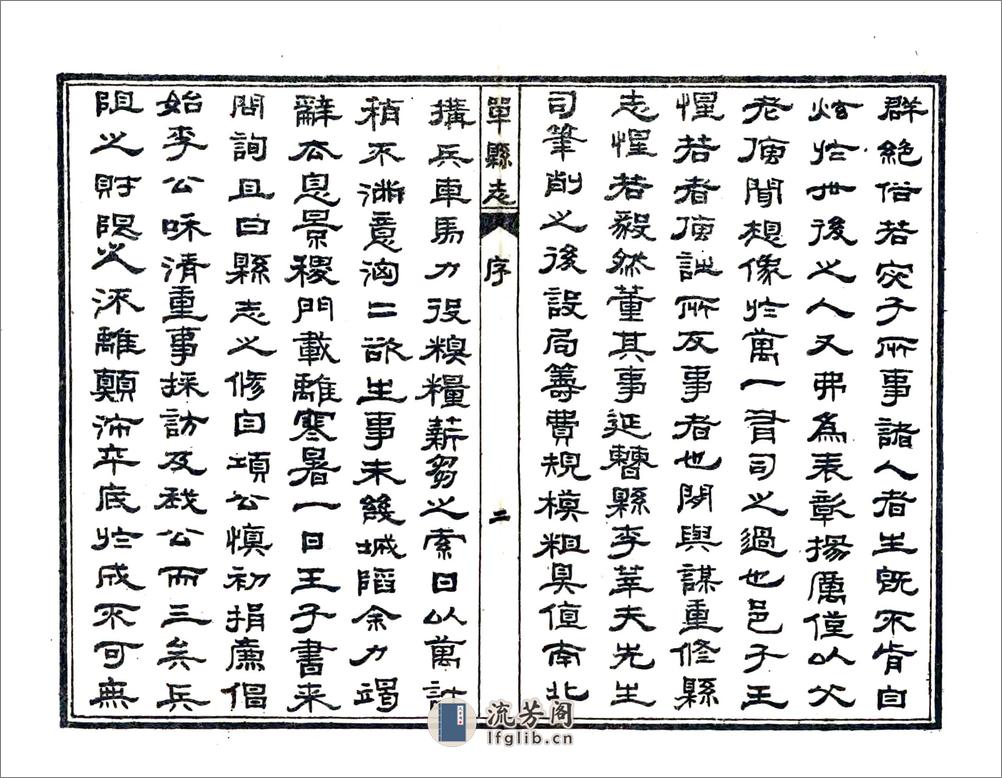 群絕俗若宓子所事諸人者生既不肯自
炫於世後之人又弗為表彰揚厲僅以父
老傳聞想像於萬一有司之過也邑子王
惺若者傳誠所友事者也閒與謀重修縣
志惺若毅然董其事延曹縣李莘夫先生
司筆削之後設局籌費規模粗具值南北
單縣志 序 二
搆兵車馬力役糗糧薪芻之索日以萬計
稍不滿意洶二欲生事未幾城陷余力竭
辭公息景稷門載離寒暑一日王子書来
問詢且曰縣志之修自項公慎初捐廉倡
始李公咊清重事採訪及我公而三矣兵
阻之財限之流離顛沛卒底於成不可無
流芳阁
lfglib.cn